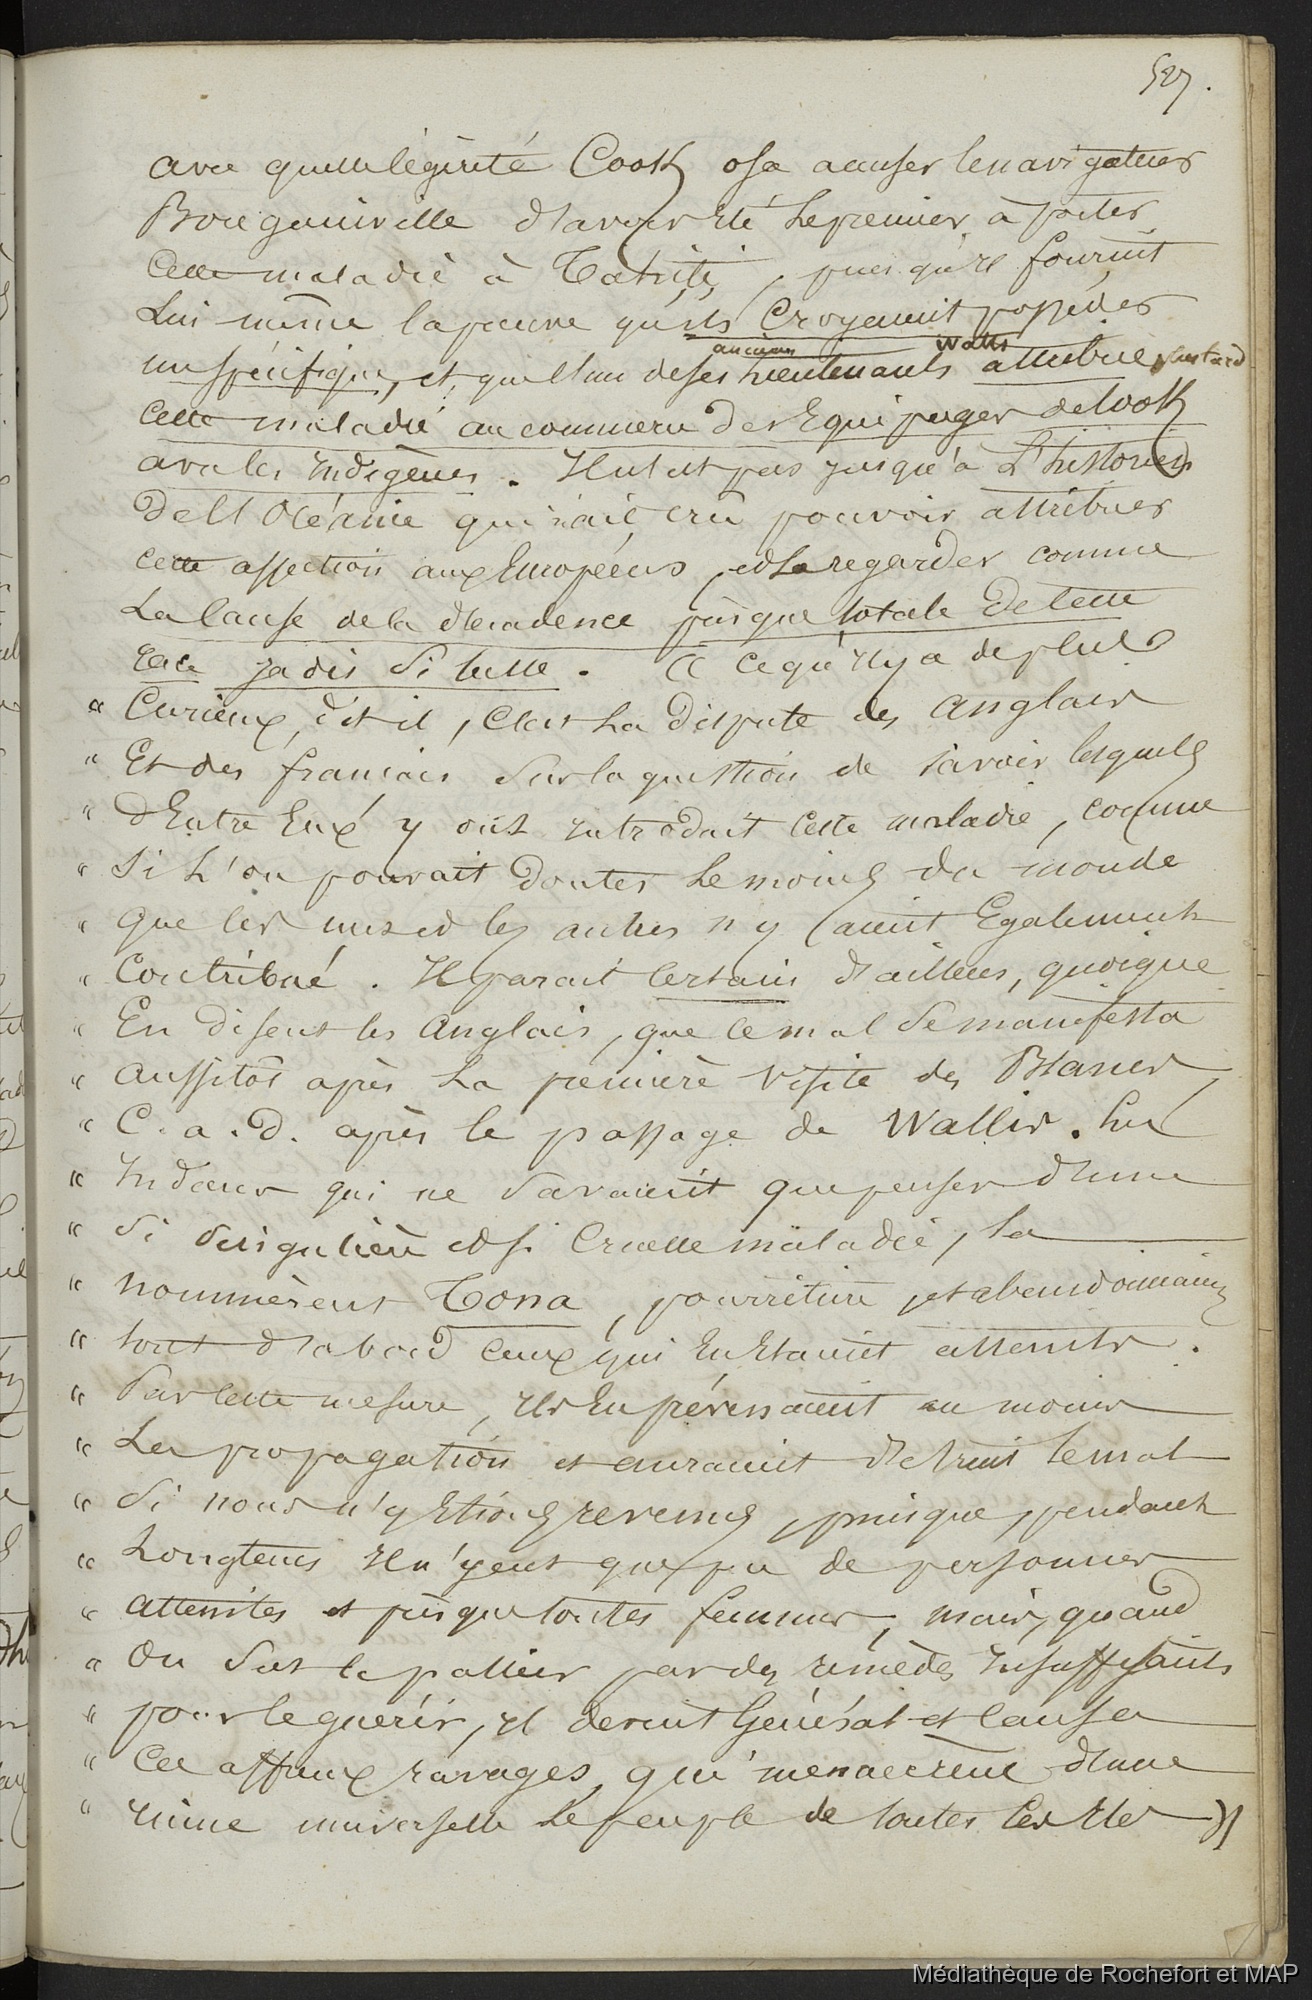 527.
avec quelle légèreté Cook osa accuser le navigateur
Bougainville d'avoir été le premier à porter
cette maladie à Tahiti, puisqu'il fournit
lui même la preuve qu'ils croyaient posséder
anciens Watts
un spécifique, et que l'un de ses lieutenants attribue plus tard
cette maladie au commerce des Equipages de Cook
avec les indigènes. Il n'est pas jusqu'à L'historien
de l'Océanie qui n'ait cru pouvoir attribuer
cette affection aux Européens, et la regarder comme
La Cause de la décadence presque totale de cette
race jadis si belle. « Ce qu'il y a de plus
« Curieux, dit il, c'est La dispute des Anglais
« Et des français sur la question de savoir lesquels
« d'Entre Eux y ont introduit cette maladie, comme
« si L'on pouvait douter le moins du monde
« que les uns et les autres n'y aient Egalement
« Contribué. Il parait certain d'ailleurs, quoique
« En disent les Anglais, que le mal se manifesta
« aussitôt après La première visite des Blancs,
« C. a. d. après le passage de Wallis. Les
« Indiens qui ne savaient que penser d'une
« si singulière et si Cruelle maladie, La
« nommèrent Tona, pourriture, et abandonnaient
« tout d'abord ceux qui En Etaient atteints.
« Par cette mesure, ils En prévenaient au moins
« La propagation et auraient détruit le mal
« si nous n'y Etions revenus, puisque, pendant
« Longtems il n'y eut que peu de personnes
« atteintes et presque toutes femmes, mais, quand
« on sut le pallier par des remèdes insuffisants
« pour le guérir, il devint Général et causa
« Ces affreux ravages, qui menacèrent d'une
« ruine universelle Le peuple de toutes Ces Iles »
Médiathèque de Rochefort et MAP